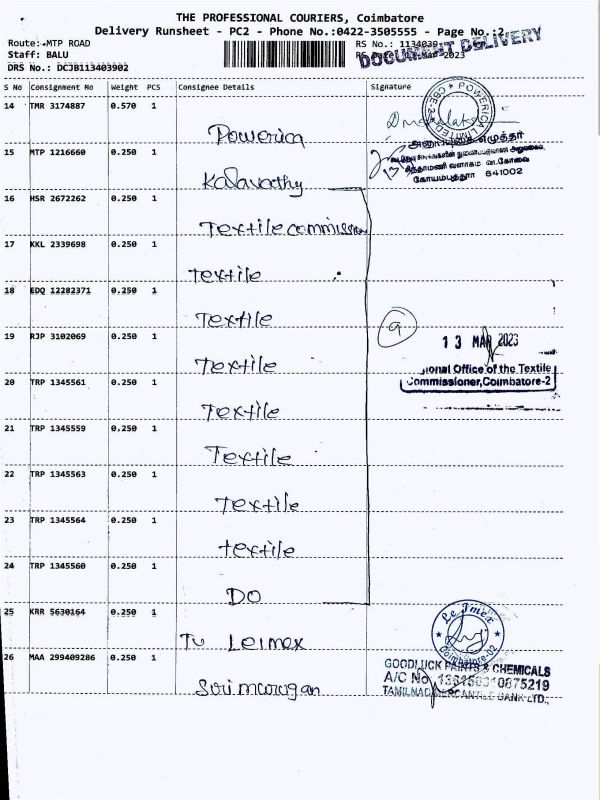 THE PROFESSIONAL COURIERS, Coimbatore
Delivery Runsheet - PC2 - Phone No.:0422-3505555 - Page No.:2
Route: MTP ROAD
RS No.: 1134039
DOCUMENT DELIVERY
Staff: BALU
DRS No.: DCJB113403902
S No Consignment No Weight PCS Consignee Details Signature
14 TMR 3174887 0.570 1
Powerica
POWERICA LIMITED CBE-2
15 MTP 1216660 0.250 1
Kalavathy
சிந்தாமணி வளாகம் வ.கோவை
கோயமுத்தூர் 641002
16 HSR 2672262 0.250 1
Textile commission
17 KKL 2339698 0.250 1
Textile
18 EDQ 12282371 0.250 1
Textile
9
19 RJP 3102069 0.250 1
13 MAR 2023
Textile
ional Office of the Textile
Commissioner, Coimbatore-2
20 TRP 1345561 0.250 1
Textile
21 TRP 1345559 0.250 1
Textile
22 TRP 1345563 0.250 1
Textile
23 TRP 1345564 0.250 1
textile
24 TRP 1345560 0.250 1
DO
25 KRR 5630164 0.250 1
Le Imex
Coimbatore-02
Leimex
26 MAA 299409286 0.250 1
GOODLUCK PAINTS & CHEMICALS
A/C No
TAMILNAD MERCANTILE BANK LTD.,
Sirimurugan